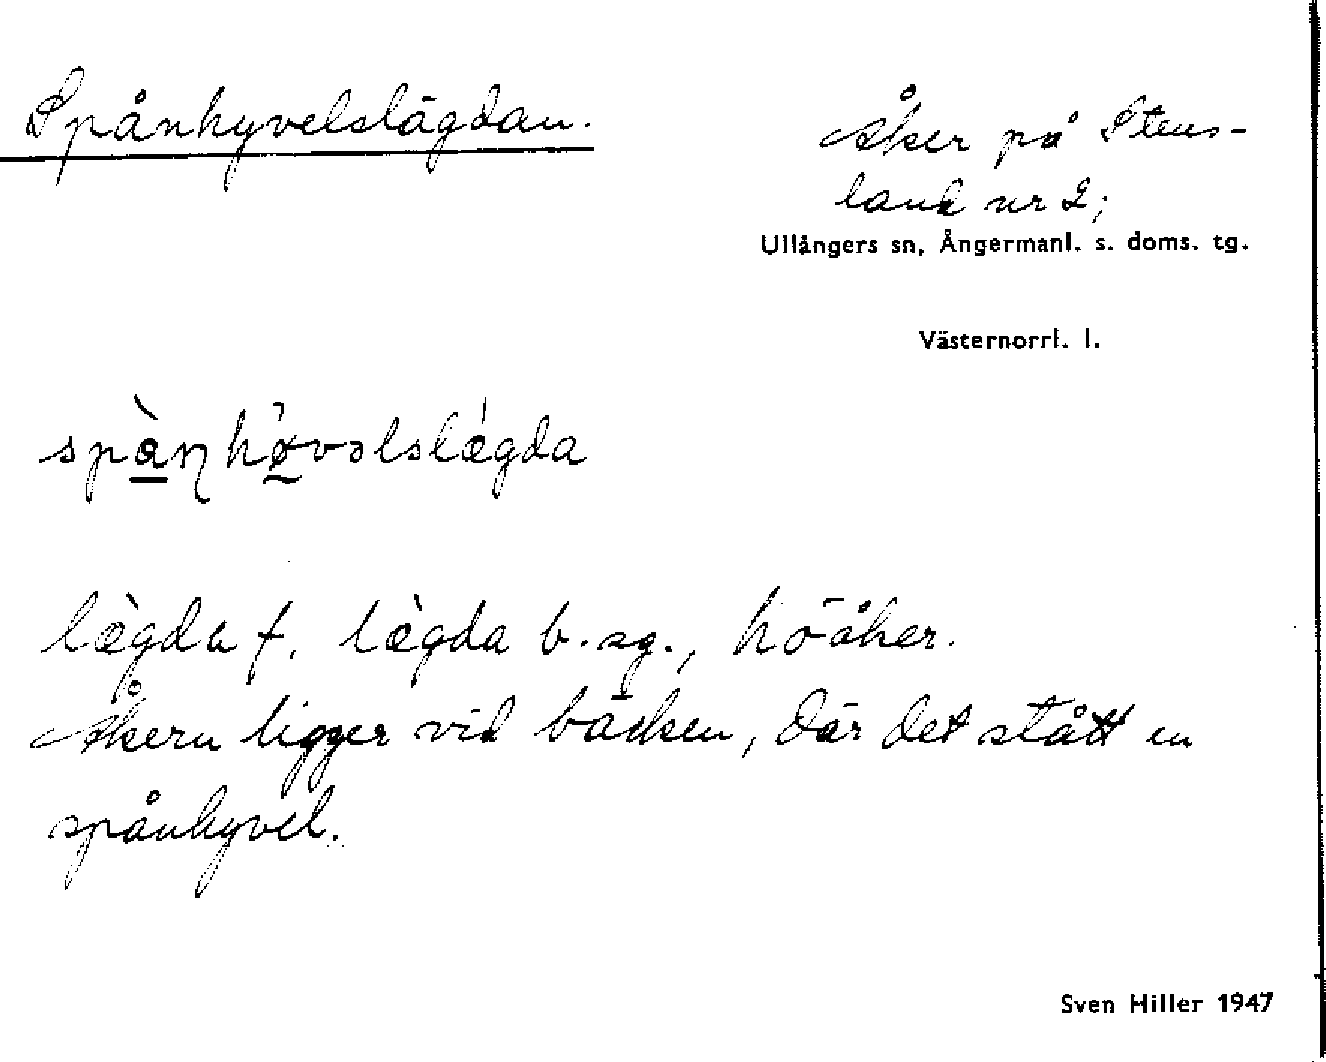 Spånhyvelslägdan.
Åker på Stens-
land nr 2;
Ullångers sn, Ångermanl. s. doms. tg.
Västernorrl. l.
spå̱̀ŋhø̱̀vəlslǽgda
læ̀gda f. læ̀gda b. sg., höåker.
Åkern ligger vid bäcken, där det stått en
spånhyvel.
Sven Hiller 1947